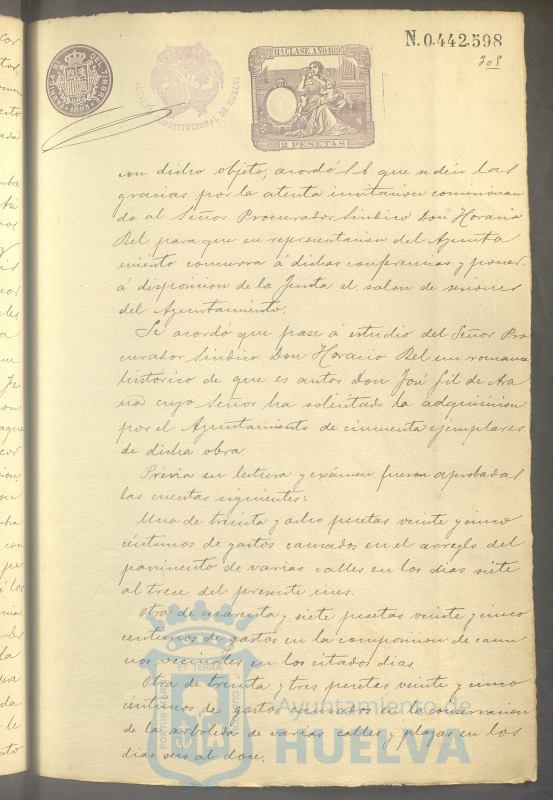 N. 0.442.598
308
DEL TIMBRE
1895
CONSTITUCIONAL DE HUELVA
11ª CLASE. AÑO 1895
2 PESETAS
con dicho objeto, acordó S.E. que se den las
gracias por la atenta invitacion comisionan
do al Señor Procurador Sindico Don Horacio
Bel para que en representacion del Ayunta
miento concurra á dichas conferencias y poner
á disposicion de la Junta el salon de sesiones
del Ayuntamiento.
Se acordó que pase á estudio del Señor Pro
curador Sindico Don Horacio Bel un romance
historico de que es autor Don José Gil de
cuyo Señor ha solicitado la adquisicion
por el Ayuntamiento de cincuenta ejemplares
de dicha obra.
Prévia su lectura y exámen fueron aprobadas
las cuentas siguientes:
Una de treinta y ocho pesetas veinte y cinco
céntimos de gastos causados en el arreglo del
pavimento de varias calles en los dias siete
al trece del presente mes.
Otra de cuarenta y siete pesetas veinte y cinco
centimos de gastos en la composicion de cami
nos vecinales en los citados dias.
Otra de treinta y tres pesetas veinte y cinco
céntimos de gastos causados en la conservacion
de la arboleda de varias calles y plazas en los
dias seis al doce.
Ayuntamiento de
HUELVA